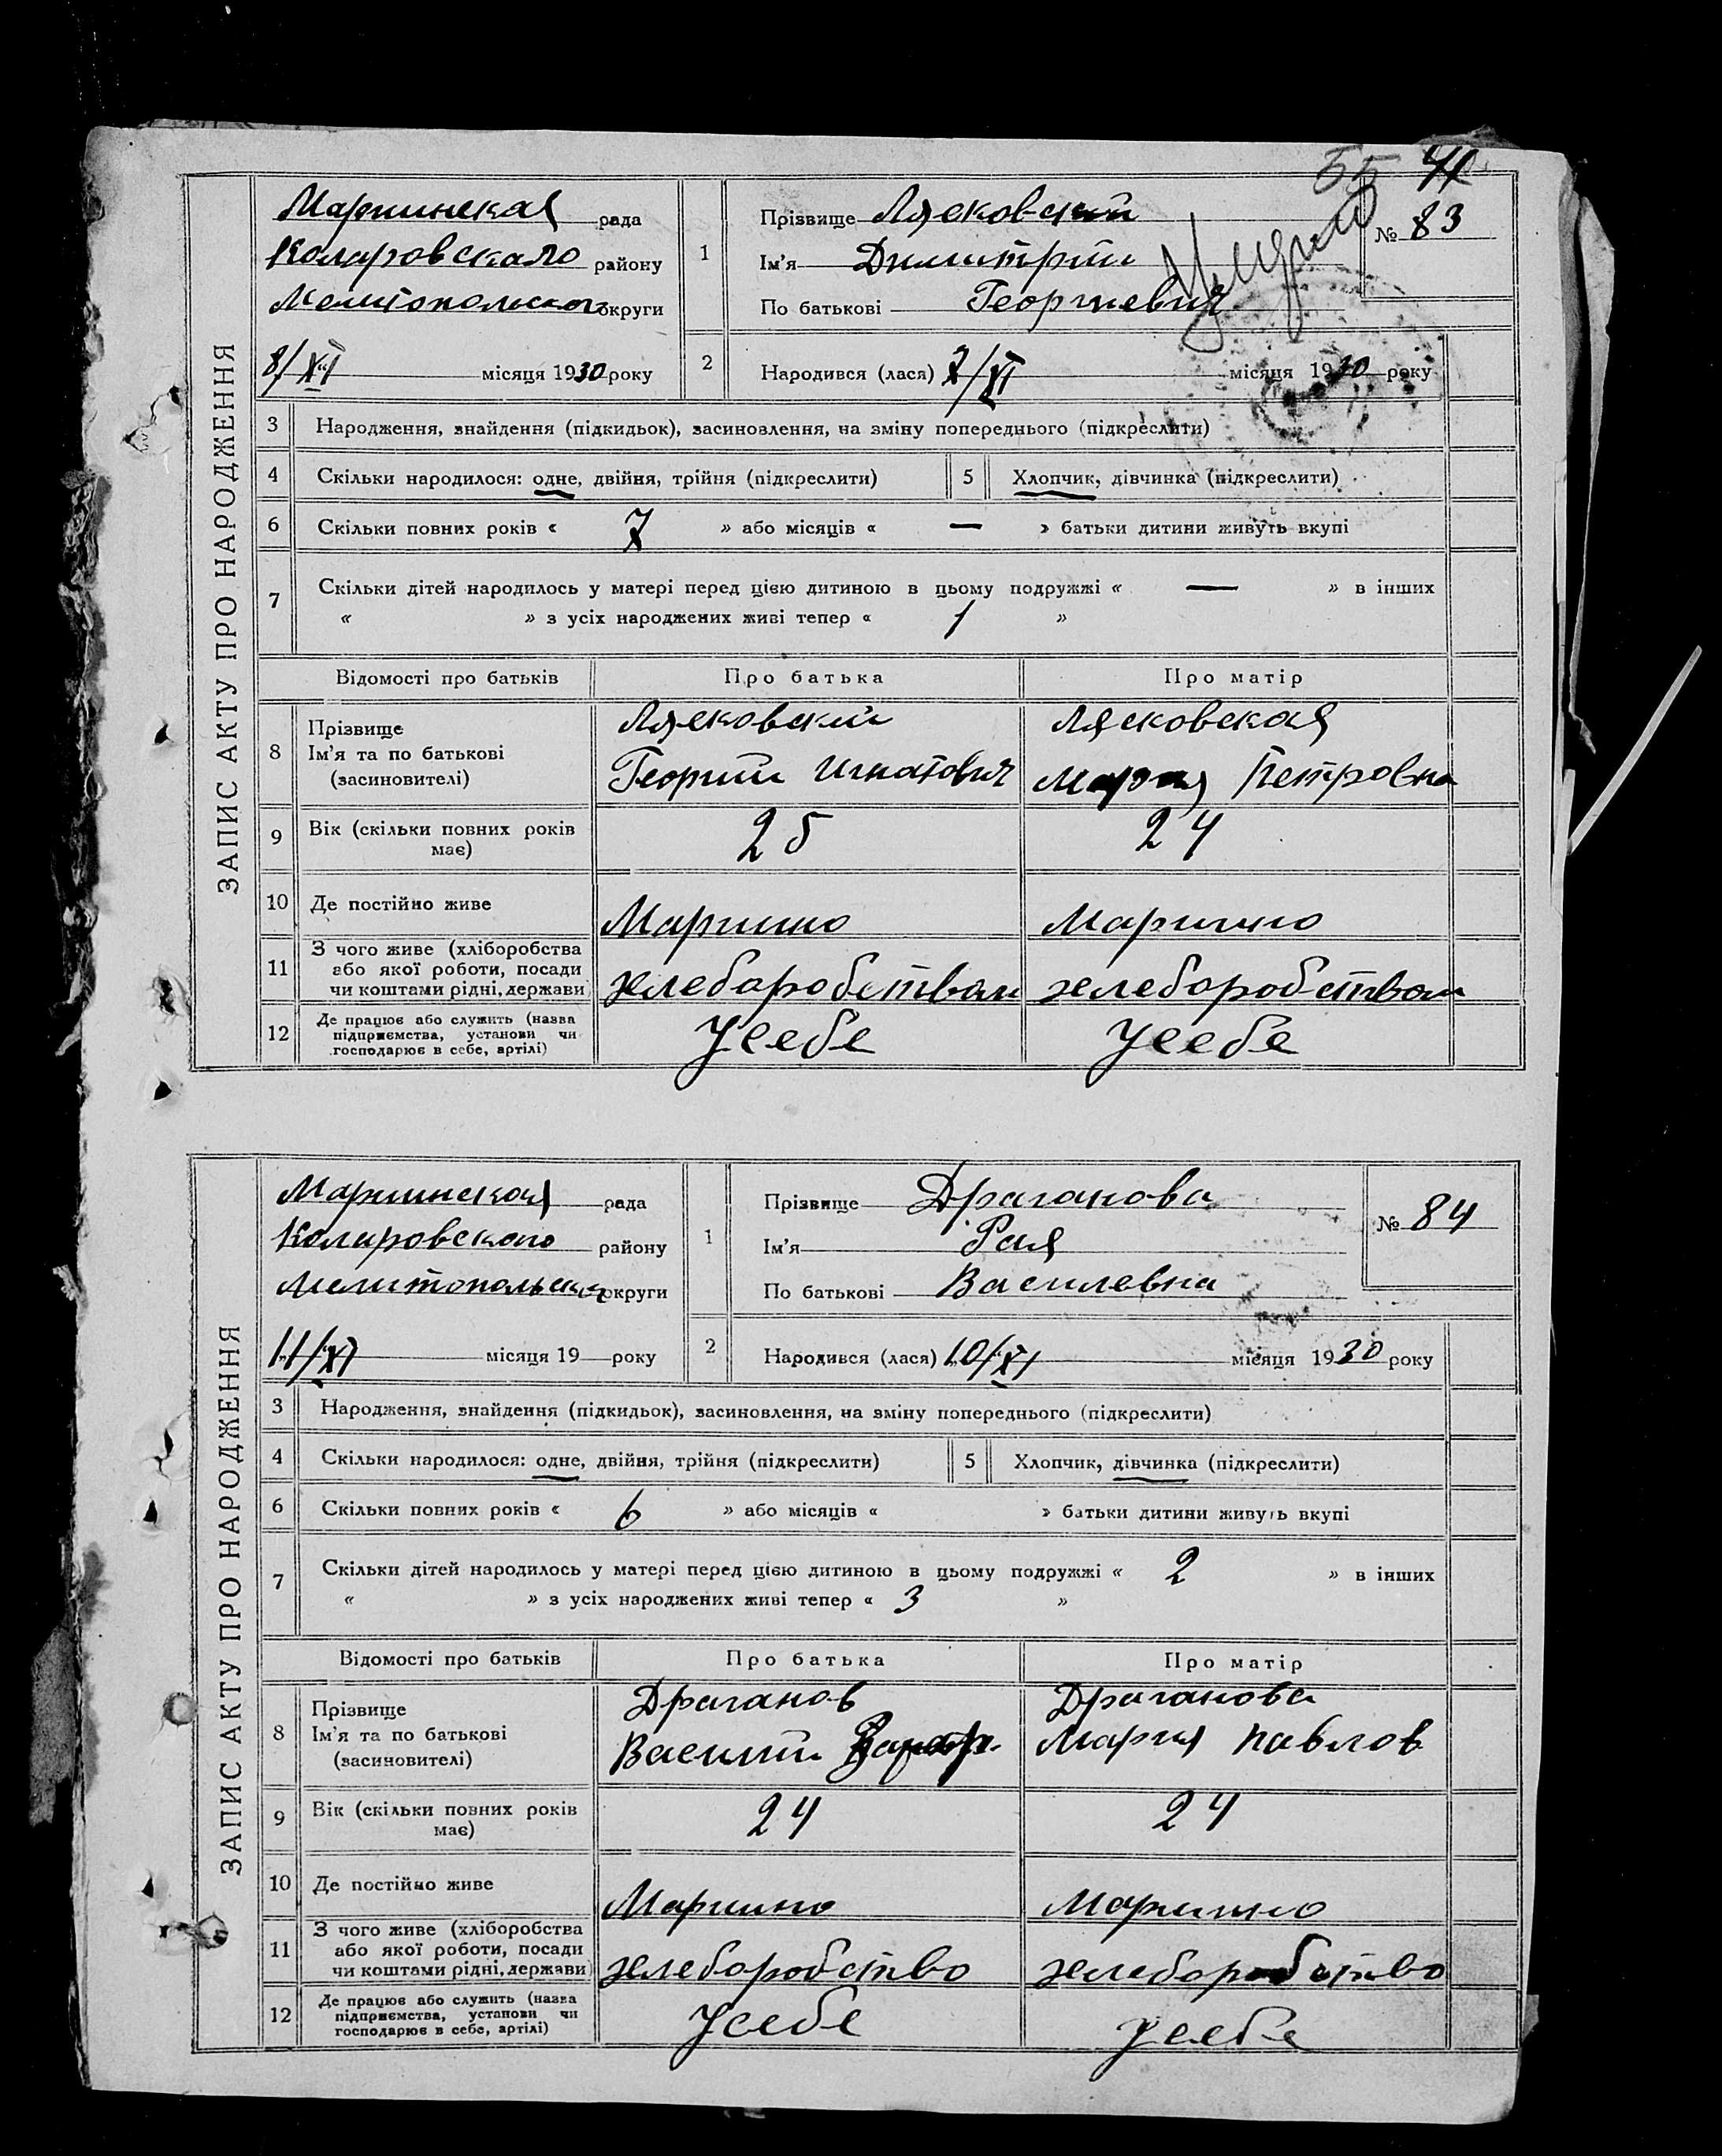 55
ЗАПИС АКТУ ПРО НАРОДЖЕННЯ
Мариинская рада
Коларовскаго району
Мелитопольског округи
8/XI місяця 1930 року
1
Прізвище Лясковский
Ім'я Димитрий
По батькові Георгиевич
№ 83
2
Народився (лася) 7/XI місяця 1930 року
3 Народження, знайдення (підкидьок), засиновлення, на зміну попереднього (підкреслити)
4 Скільки народилося: одне, двійня, трійня (підкреслити) 5 Хлопчик, дівчинка (підкреслити)
6 Скільки повних років « 7 » або місяців « — » батьки дитини живуть вкупі
7 Скільки дітей народилось у матері перед цією дитиною в цьому подружжі « — » в інших
« » з усіх народжених живі тепер « 1 »
Відомості про батьків Про батька Про матір
8 Прізвище
Ім'я та по батькові
(засиновителі)
Лясковский
Георгий Игнатович
Лясковская
Мария Петровна
9 Вік (скільки повних років
має)
25 24
10 Де постійно живе Мариино Мариино
11 З чого живе (хліборобства
або якої роботи, посади
чи коштами рідні, держави
хлеборобством хлеборобством
12 Де працює або служить (назва
підприємства, установи чи
господарює в себе, артілі)
Усебе Усебе
ЗАПИС АКТУ ПРО НАРОДЖЕННЯ
Мариинская рада
Коларовского району
округи
11/XI місяця 19 року
1
Прізвище Драганова
Ім'я Рая
По батькові Василевна
№ 84
2
Народився (лася) 10/XI місяця 1930 року
3 Народження, знайдення (підкидьок), засиновлення, на зміну попереднього (підкреслити)
4 Скільки народилося: одне, двійня, трійня (підкреслити) 5 Хлопчик, дівчинка (підкреслити)
6 Скільки повних років « 6 » або місяців « » батьки дитини живуть вкупі
7 Скільки дітей народилось у матері перед цією дитиною в цьому подружжі « 2 » в інших
« » з усіх народжених живі тепер « 3 »
Відомості про батьків Про батька Про матір
8 Прізвище
Ім'я та по батькові
(засиновителі)
Драганов
Василий
Драганова
Мария Павлов
9 Вік (скільки повних років
має)
24 24
10 Де постійно живе Мариино Мариино
11 З чого живе (хліборобства
або якої роботи, посади
чи коштами рідні, держави
хлеборобство хлеборобство
12 Де працює або служить (назва
підприємства, установи чи
господарює в себе, артілі)
Усебе Усебе